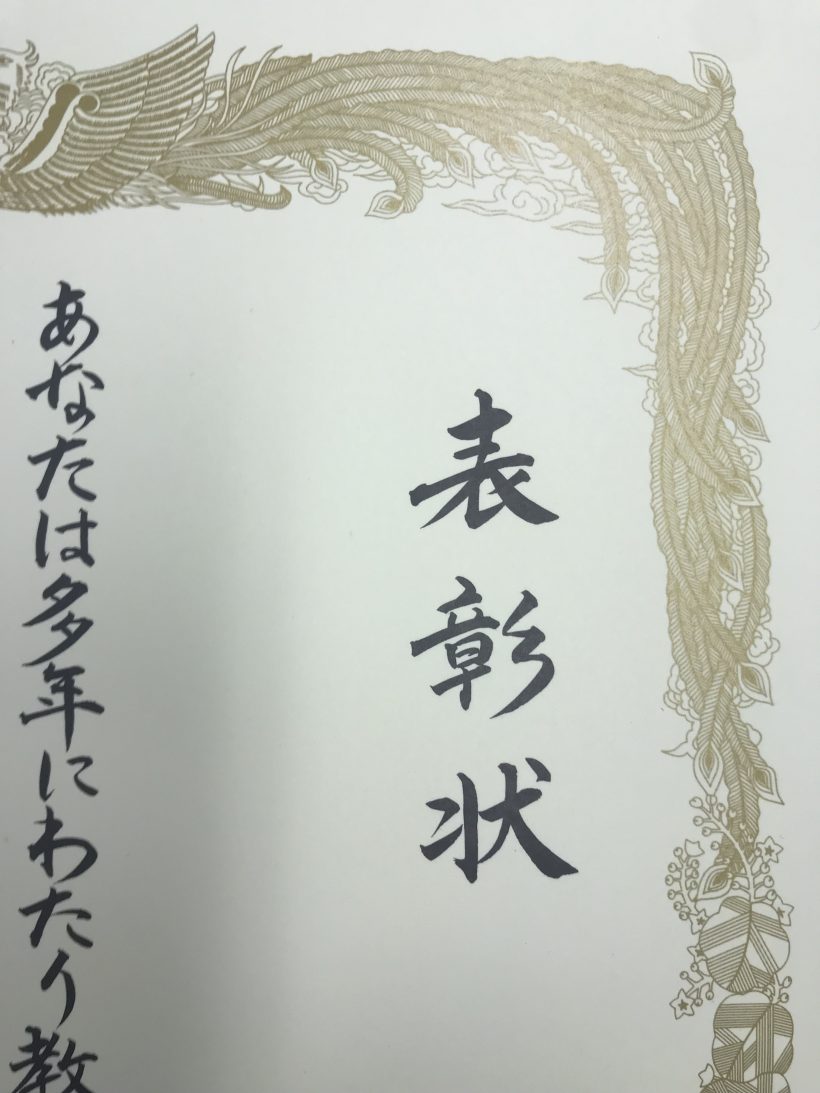 表彰状
あなたは多年にわたり教